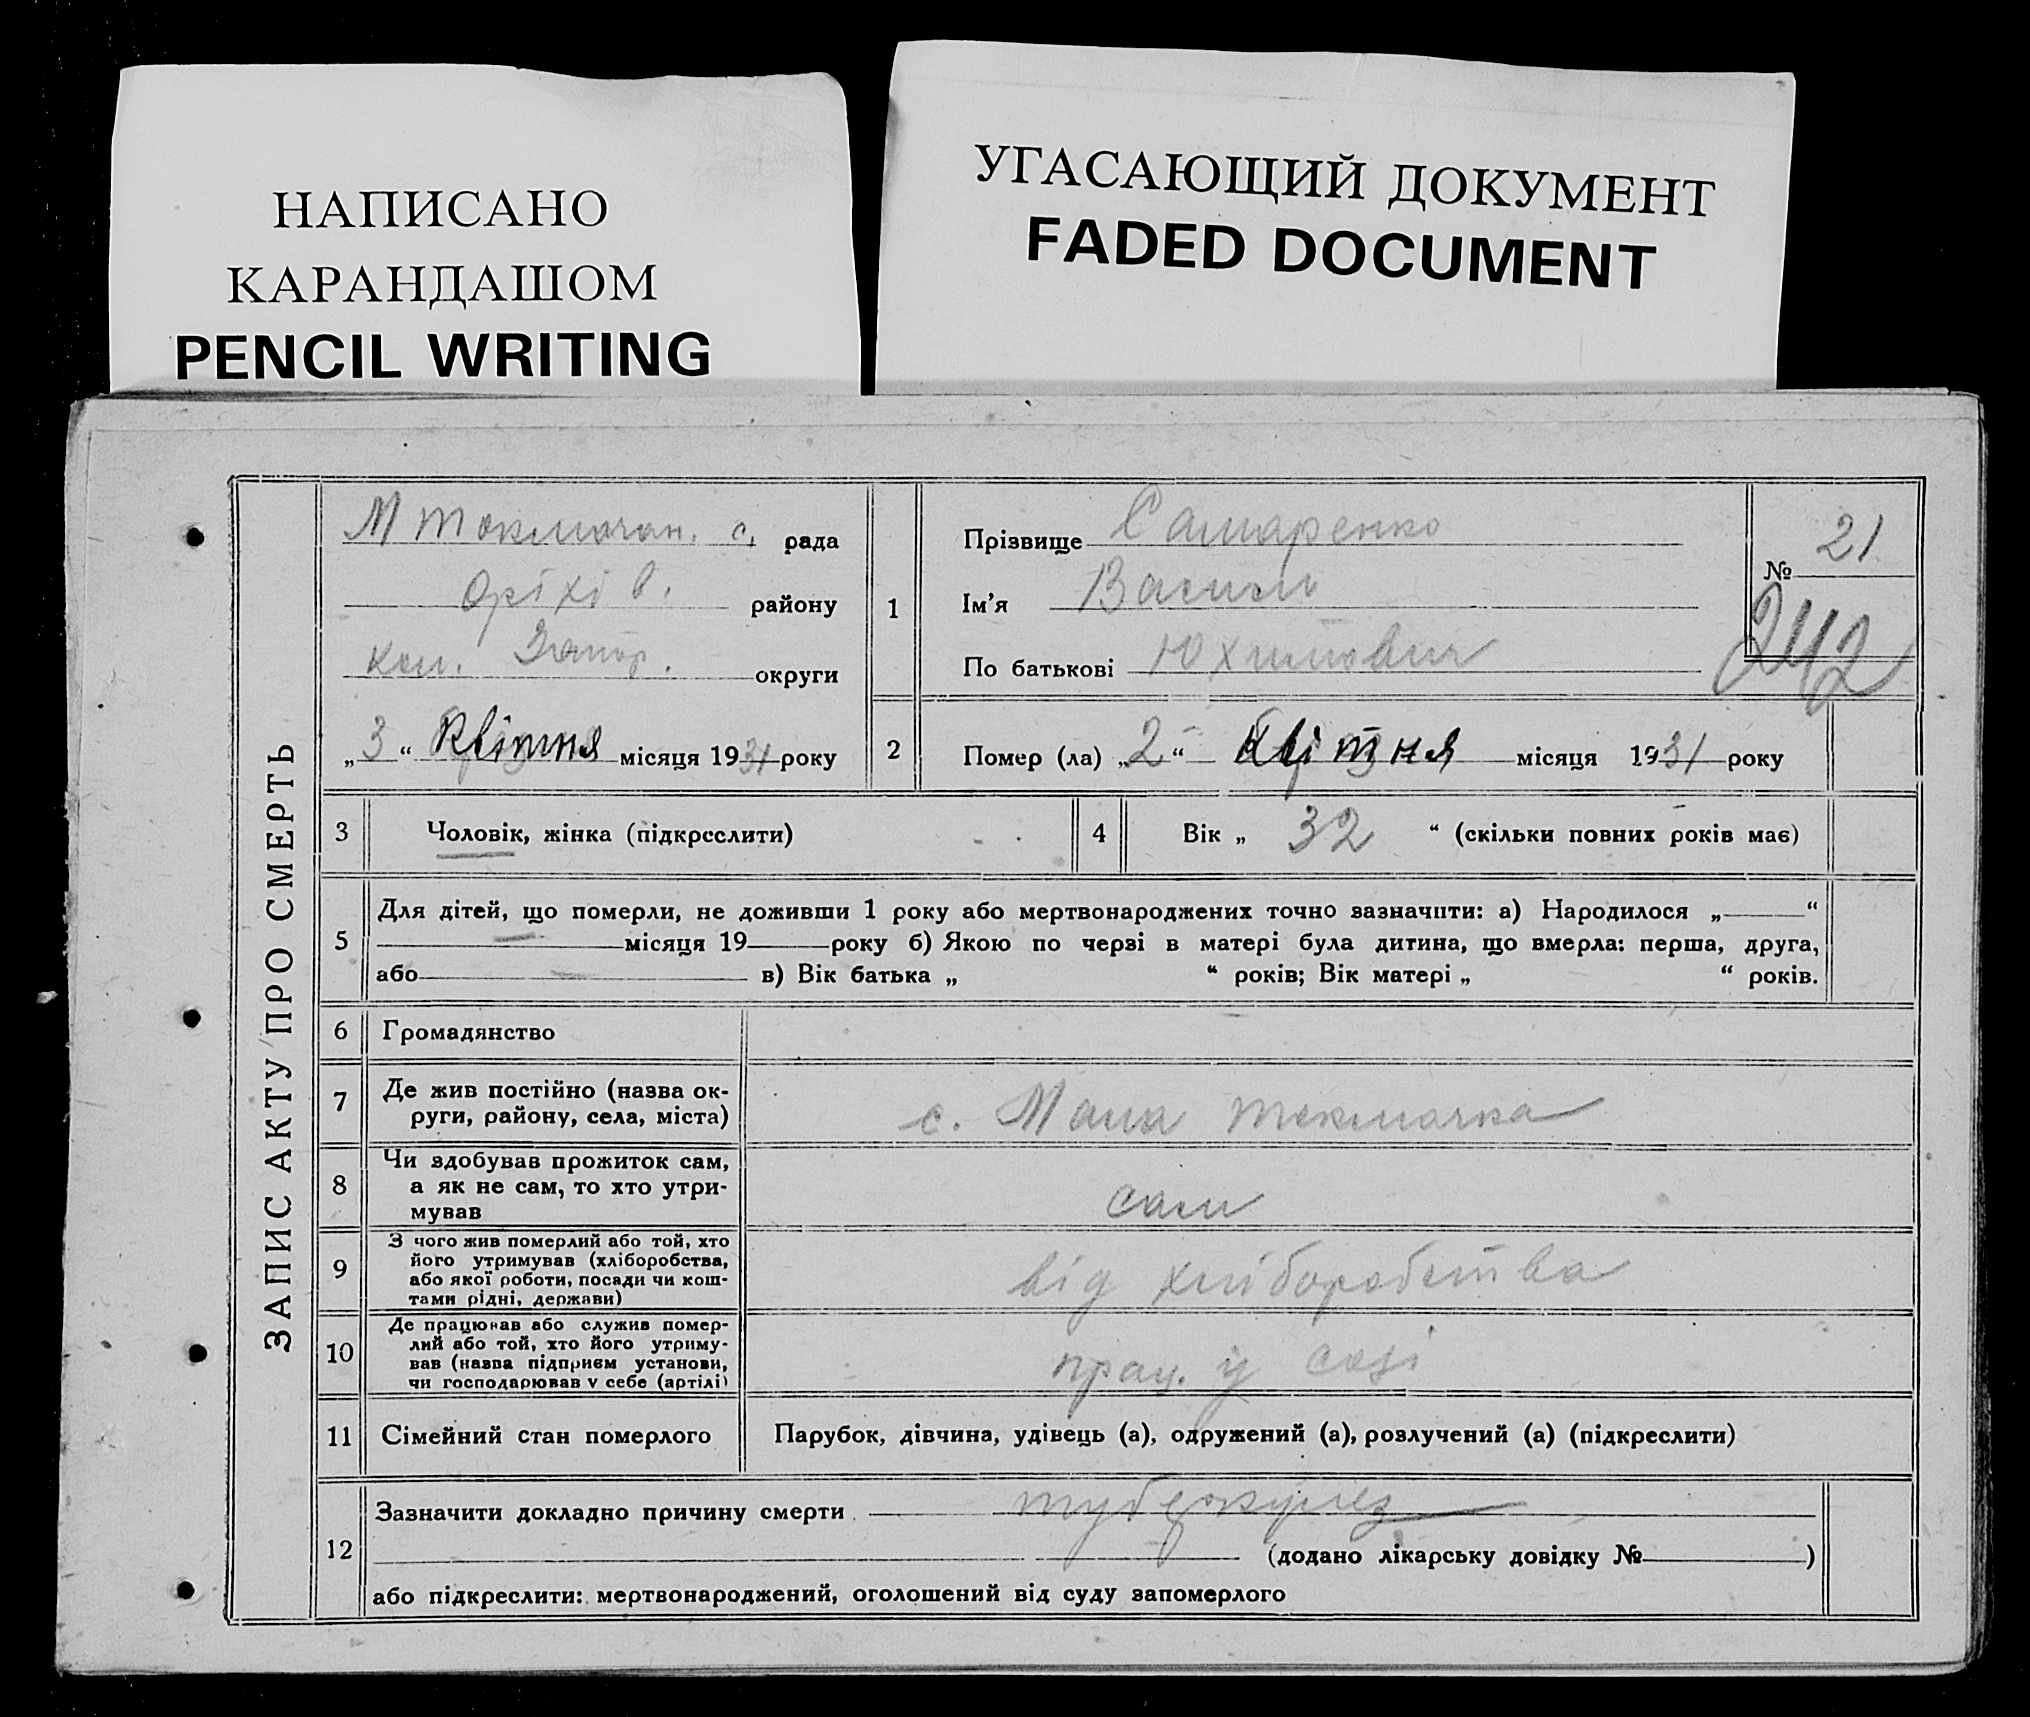 НАПИСАНО
КАРАНДАШОМ
PENCIL WRITING
УГАСАЮЩИЙ ДОКУМЕНТ
FADED DOCUMENT
ЗАПИС АКТУ ПРО СМЕРТЬ
М Токмачан. с. рада
Оріхів. району
кол. Запор. округи
„3“ Квітня місяця 1931 року
1
Прізвище Самаренко
Ім'я Василь
По батькові Юхимович
№ 21
242
2 Помер (ла) „2“ Квітня місяця 1931 року
3 Чоловік, жінка (підкреслити)
4 Вік „ 32 “ (скільки повних років має)
5 Для дітей, що померли, не доживши 1 року або мертвонароджених точно зазначити: а) Народилося „ “
місяця 19 року б) Якою по черзі в матері була дитина, що вмерла: перша, друга,
або в) Вік батька „ “ років; Вік матері „ “ років.
6 Громадянство
7 Де жив постійно (назва ок-
руги, району, села, міста)
с. Мала Токмачка
8 Чи здобував прожиток сам,
а як не сам, то хто утри-
мував
сам
9 З чого жив померлий або той, хто
його утримував (хліборобства,
або якої роботи, посади чи кош-
тами рідні, держави)
від хліборобства
10 Де працював або служив помер-
лий або той, хто його утриму-
вав (назва підприєм установи,
чи господарював у себе (артілі)
прац. у созі
11 Сімейний стан померлого
Парубок, дівчина, удівець (а), одружений (а), розлучений (а) (підкреслити)
12 Зазначити докладно причину смерти туберкульоз
(додано лікарську довідку № )
або підкреслити: мертвонароджений, оголошений від суду запомерлого